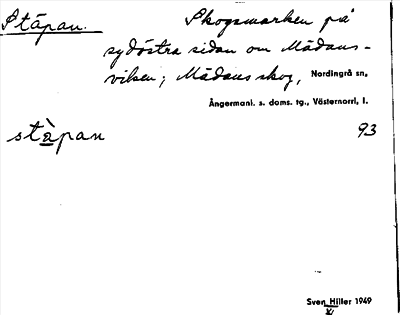 Ståpan. Skogsmarken på
sydöstra sidan om Mädans-
viken; Mädans skog, Nordingrå sn,
Ångermanl. s. doms. tg., Västernorrl, l.
stàpan 93
Sven Hiller 1949
XI